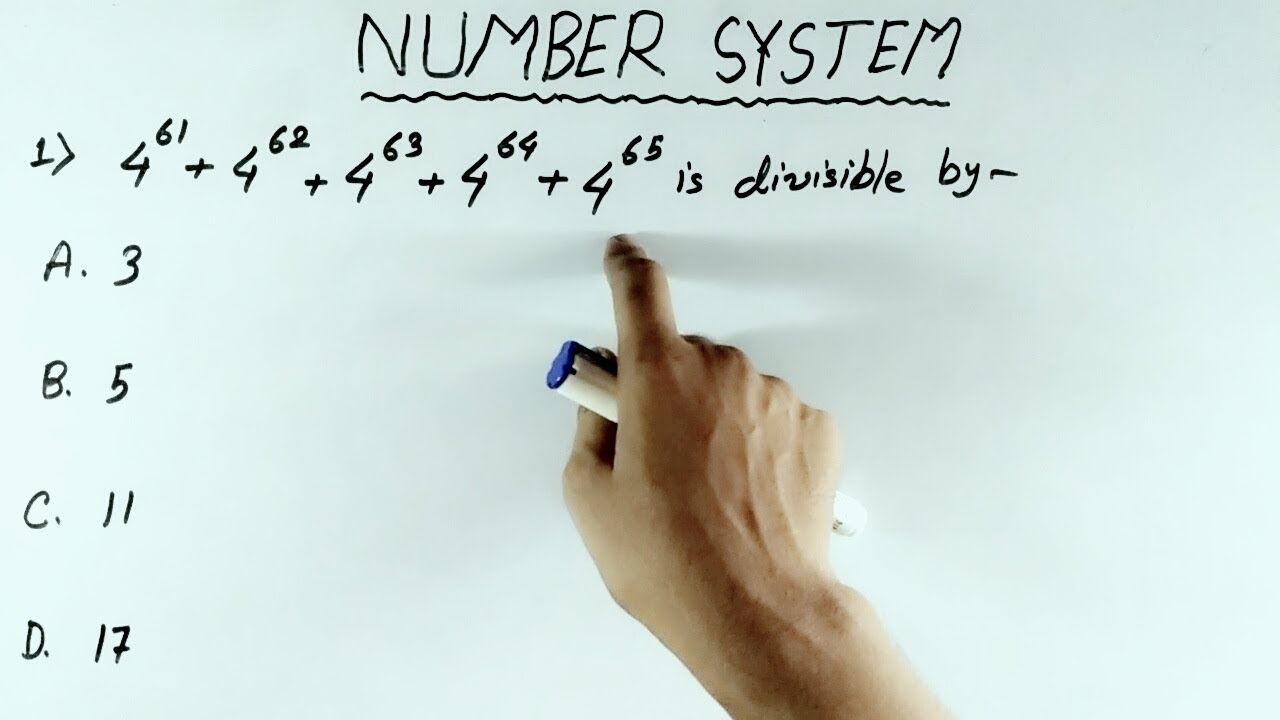 NUMBER SYSTEM
1) 4^61 + 4^62 + 4^63 + 4^64 + 4^65 is divisible by-
A. 3
B. 5
C. 11
D. 17